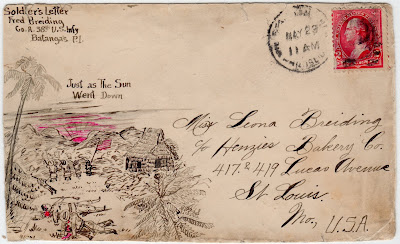 Soldier's Letter
Fred Breiding
Co. A. 38th U.S. Infy
Batangas P.I.
Just as The Sun
Went Down
MAY 29
11 AM
Miss Leona Breiding
c/o Henzies Bakery Co.
417 & 419 Lucas Avenue
St. Louis.
Mo., U.S.A.